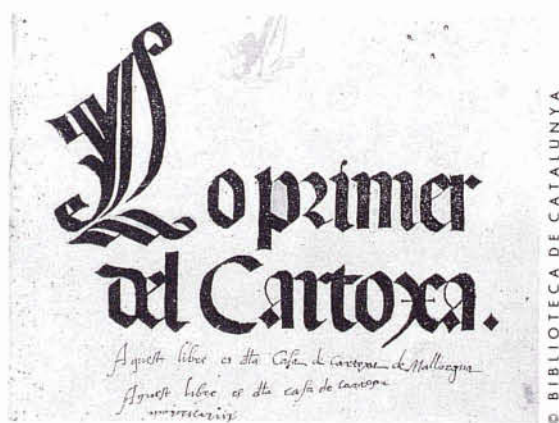 Lo primer
del Cartoxa.
Aquest libre es dla Casa de Cartoxa de Mallorqua
Aquest libre es dla casa de
© BIBLIOTECA DE CATALUNYA